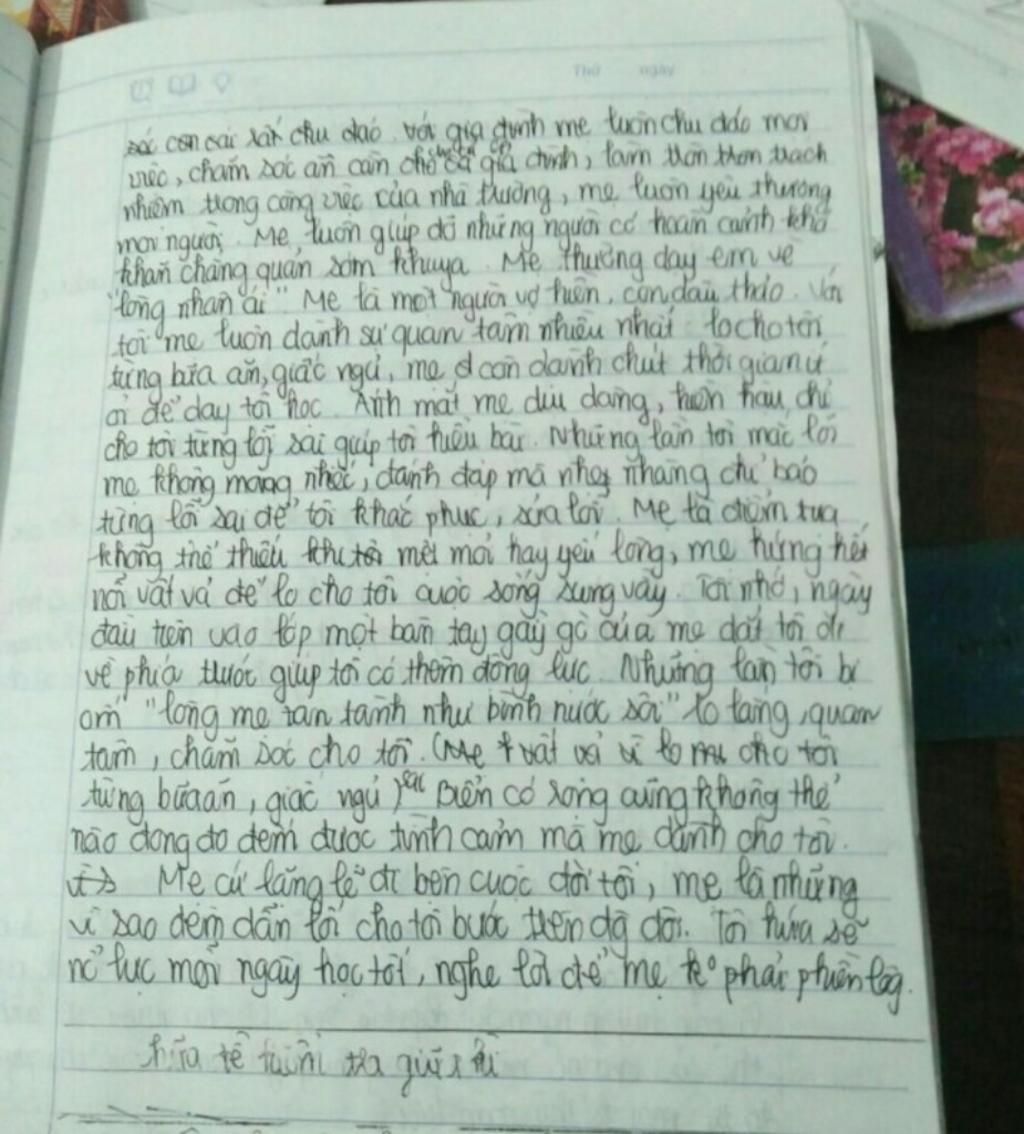 Thứ ngày
sóc con cái rất chu đáo. Với gia đình mẹ luôn chu đáo mọi
việc, chăm sóc ân cần cho cả gia đình, làm tròn tròn trách
nhiệm trong công việc của nhà trường, mẹ luôn yêu thương
mọi người. Mẹ luôn giúp đỡ những người có hoàn cảnh khó
khăn chẳng quản sớm khuya. Mẹ thường dạy em về
"lòng nhân ái". Mẹ là một người vợ hiền, con dâu thảo. Với
tôi mẹ luôn dành sự quan tâm nhiều nhất lo cho tôi
từng bữa ăn, giấc ngủ, mẹ còn dành chút thời gian ít
ỏi để dạy tôi học. Ánh mắt mẹ dịu dàng, hiền hậu, chỉ
cho tôi từng lỗi sai giúp tôi hiểu bài. Những lần tôi mắc lỗi
mẹ không mắng nhiếc, đánh đập mà nhẹ nhàng chỉ bảo
từng lỗi sai để tôi khắc phục, sửa lỗi. Mẹ là điểm tựa
không thể thiếu khi tôi mệt mỏi hay yếu lòng, mẹ hứng hết
nỗi vất vả để lo cho tôi cuộc sống sung vầy. Tôi nhớ, ngày
đầu tiên vào lớp một bàn tay gầy gò của mẹ dắt tôi đi
về phía trước giúp tôi có thêm động lực. Những lần tôi bị
ốm "lòng mẹ tan tành như bình nước sôi" lo lắng, quan
tâm, chăm sóc cho tôi. (Mẹ vất vả vì lo cho tôi
từng bữa ăn, giấc ngủ) Biển có rộng cũng không thể
nào đong đo đếm được tình cảm mà mẹ dành cho tôi.
Mẹ cứ lặng lẽ đi bên cuộc đời tôi, mẹ là những
vì sao đêm dẫn lối cho tôi bước trên đg đời. Tôi hứa sẽ
nỗ lực mỗi ngày học tốt, nghe lời để mẹ k° phải phiền lòg.